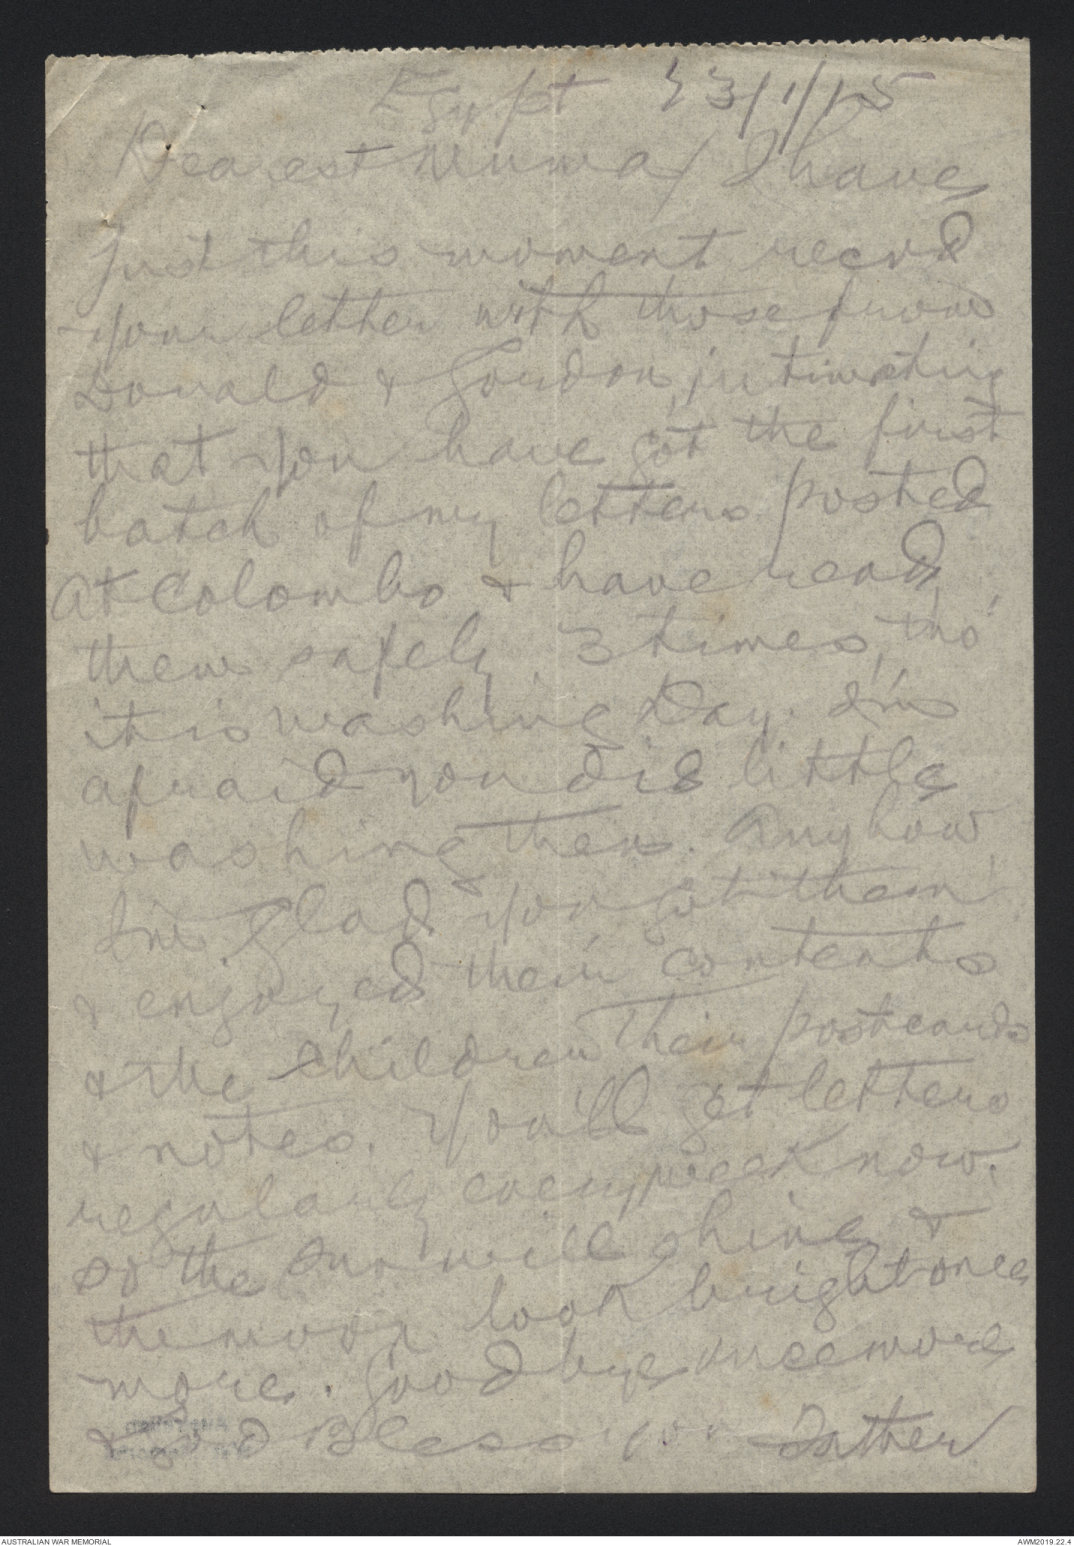 Egypt 23/1/15
Dearest Mumma/ I have
just this moment recevd
your letter with those from
Donald & Gordon, intimating
that you have got the first
batch of my letters posted
at Colombo & have read
them safely 3 times, tho'
it is washing Day. I'm
afraid you did little
washing then. Anyhow,
I'm glad you got them
& enjoyed their contents
& the children their postcards
& notes. You'll get letters
regularly every week now.
so the Sun will shine &
the moon look bright once
more. Goodbye once more
& God Bless you Father
AUSTRALIAN WAR MEMORIAL
AWM2019.22.4